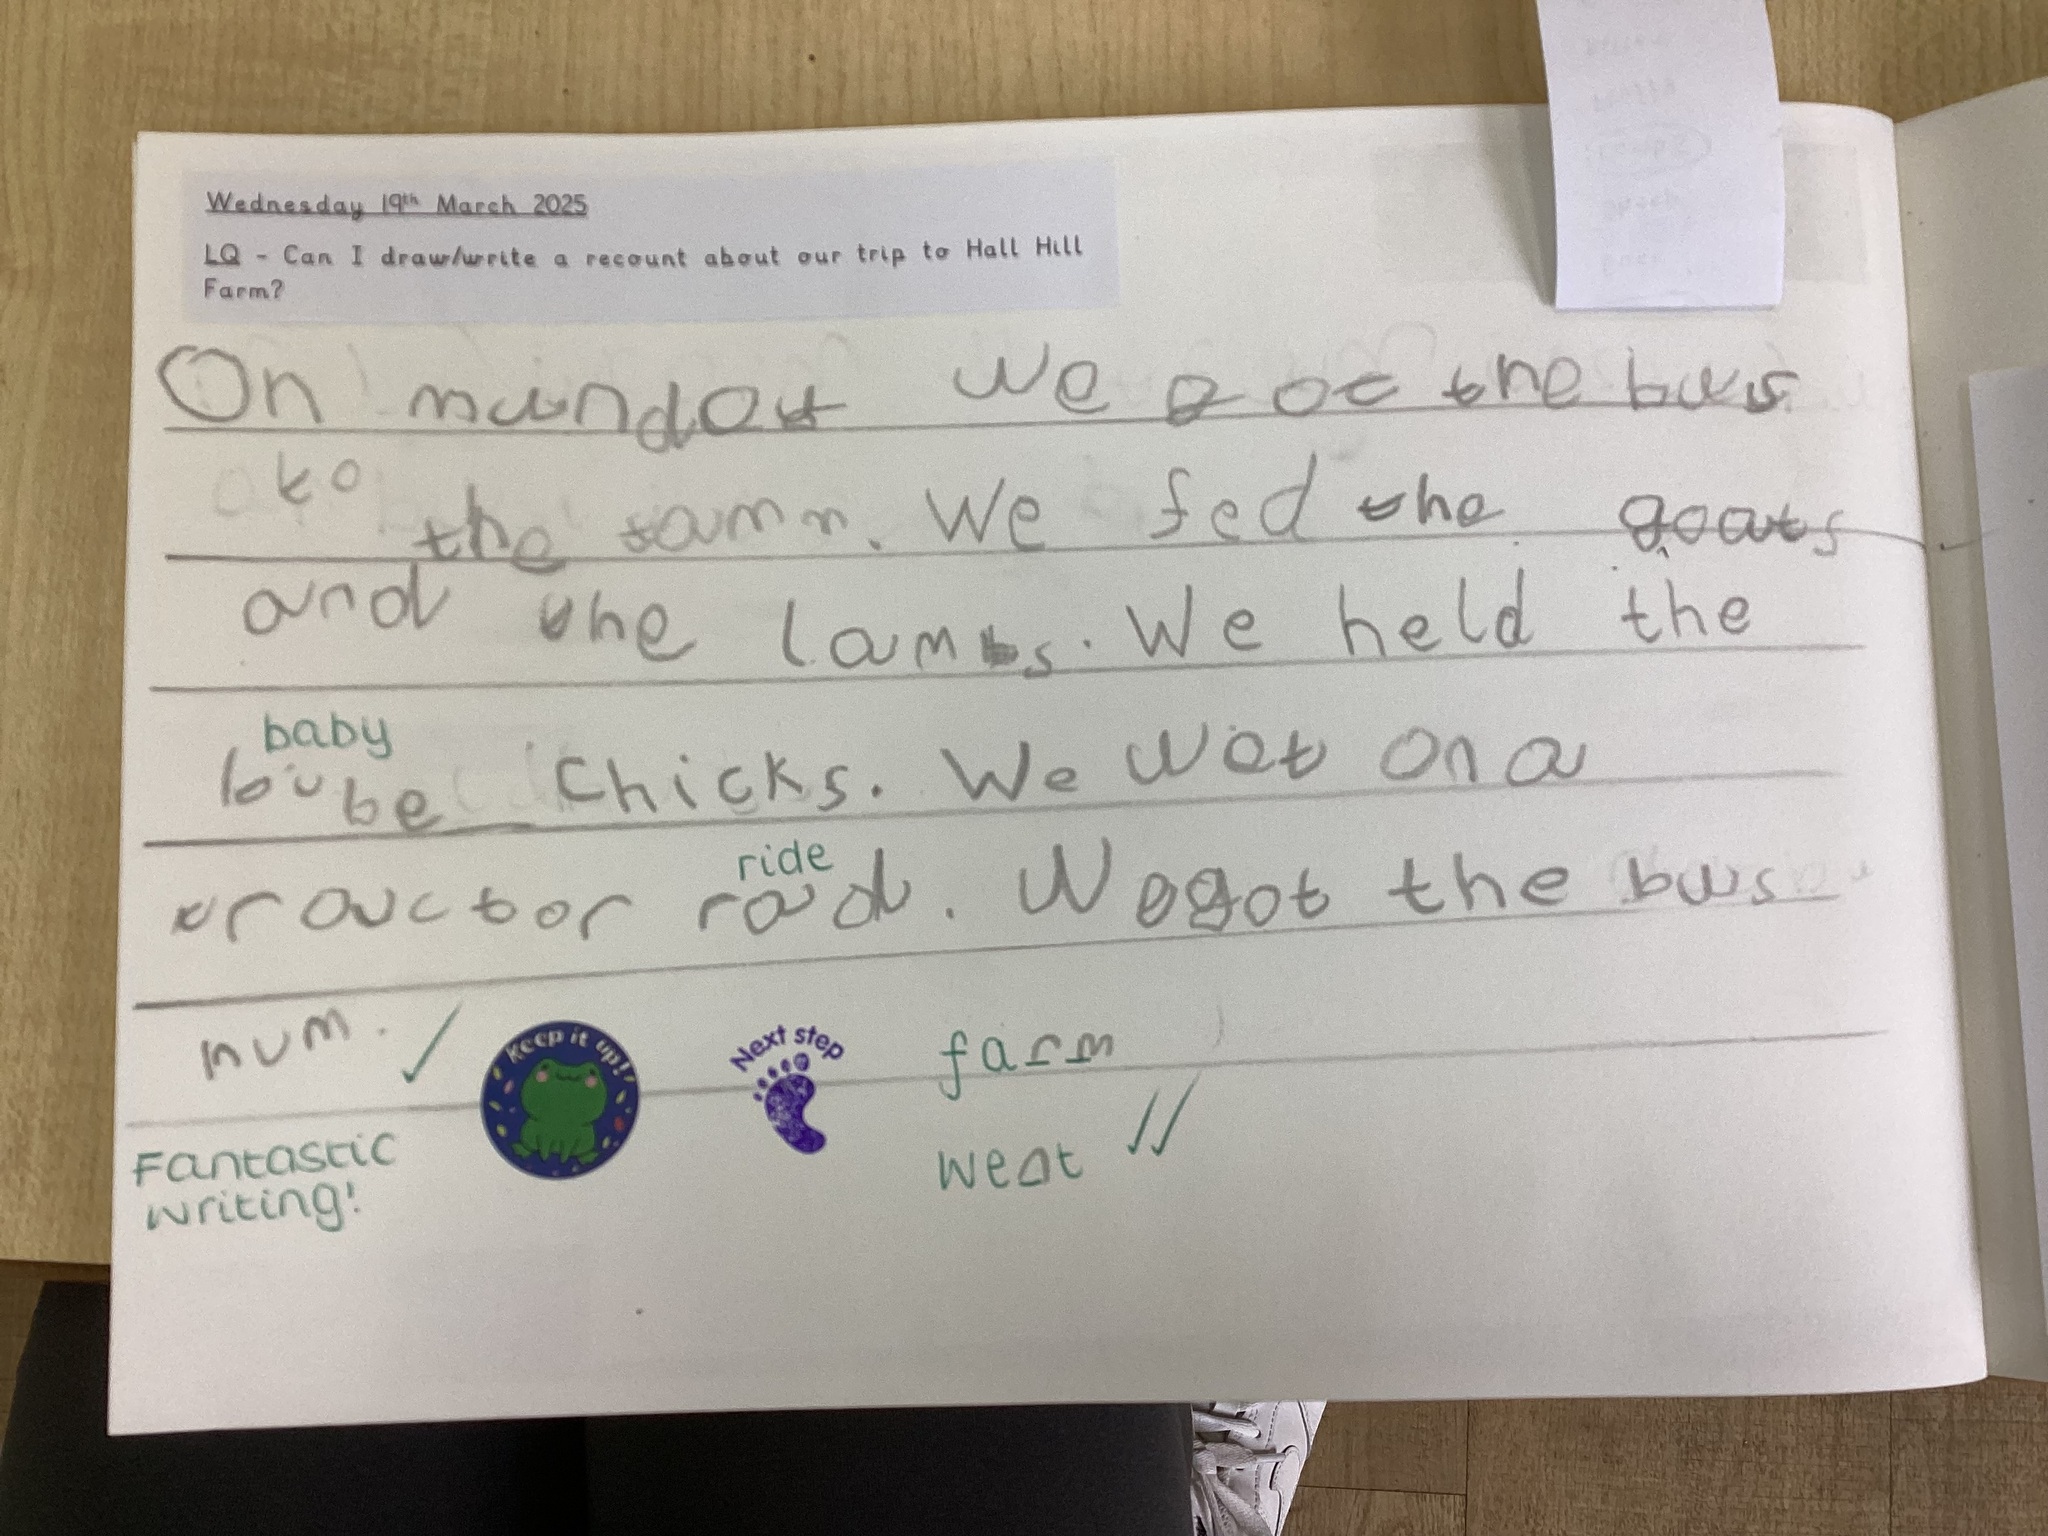 Wednesday 19th March 2025
LQ - Can I draw/write a recount about our trip to Hall Hill
Farm?
On mundat We got the bus
to the famm. We fed the goats
and the lambs. We held the
baby
babe Chicks. We wet on a
ride
tractor rad. We got the bus
hum.
Keep it up!
Next step
farm
went
Fantastic
writing!